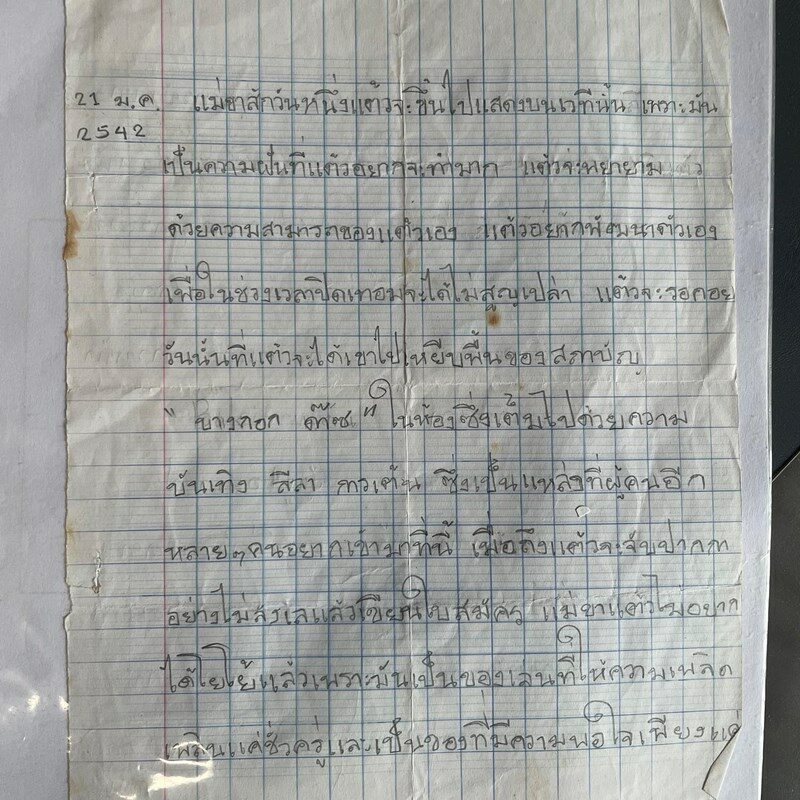 21 ม.ค. แม่ขาสักวันหนึ่งแต้วจะขึ้นไปแสดงบนเวทีนั้น เพราะมัน
2542
เป็นความฝันที่แต้วอยากจะทำมาก แต้วจะพยายาม
ด้วยความสามารถของแต้วเอง แต้วอยากพัฒนาตัวเอง
เพื่อในช่วงเวลาปิดเทอมจะได้ไม่สูญเปล่า แต้วจะรอคอย
วันนั้นที่แต้วจะได้เข้าไปเหยียบพื้นของสถาบัญ
" บางกอก ด๊๊ซ " ในห้องซึ่งเต็มไปด้วยความ
บันเทิง ลีลา การเต้น ซึ่งเป็นแหล่งที่ผู้คนอีก
หลายๆคนอยากเข้ามาที่นี้ เมื่อถึงแต้วจะจับปากกา
อย่างไม่ลังเลแล้วเขียนใบสมัคร แม่ขาแต้วไม่อยาก
ได้โยโย้แล้วเพราะมันเป็นของเล่นที่ให้ความเพลิด
เพลินแค่ชั่วครู่และเป็นของที่มีความพอใจเพียงแค่